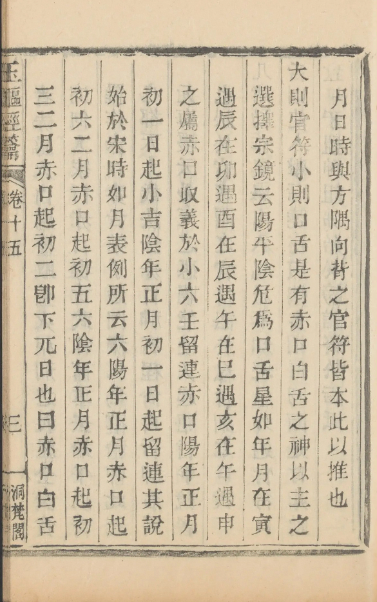 月日時與方隅向背之官符皆本此以推也
大則官符小則口舌是有赤口白舌之神以主之
選擇宗鏡云陽平陰危為口舌星如年月在寅
遇辰在卯遇酉在辰遇午在巳遇亥在午遇申
之屬赤口取義於小六壬留連赤口陽年正月
初一日起小吉陰年正月初一日起留連其說
始於宋時如月表例所云六陽年正月赤口起
初六二月赤口起初五六陰年正月赤口起初
三二月赤口起初二卽下兀日也曰赤口白舌
玉樞經籥
卷十五
三
洞梵閣